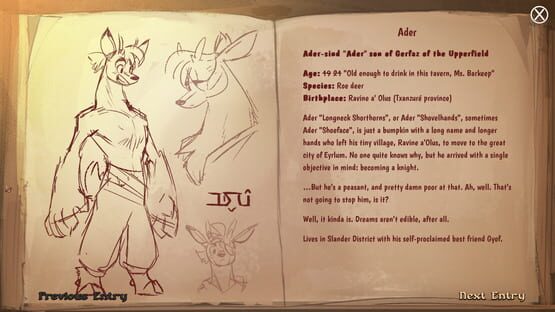 Ader
Ader-zind "Ader" son of Gerfaz of the Upperfield
Age: 19 21 "Old enough to drink in this tavern, Ms. Barkeep"
Species: Roe deer
Birthplace: Ravine a' Olus (Txanzuré province)
Ader "Longneck Shorthorns", or Ader "Shovelhands", sometimes
Ader "Shoeface", is just a bumpkin with a long name and longer
hands who left his tiny village, Ravine a'Olus, to move to the great
city of Eyrlum. No one quite knows why, but he arrived with a single
objective in mind: becoming a knight.
...But he's a peasant, and pretty damn poor at that. Ah, well. That's
not going to stop him, is it?
Well, it kinda is. Dreams aren't edible, after all.
Lives in Slander District with his self-proclaimed best friend Gyof.
Previous Entry
Next Entry